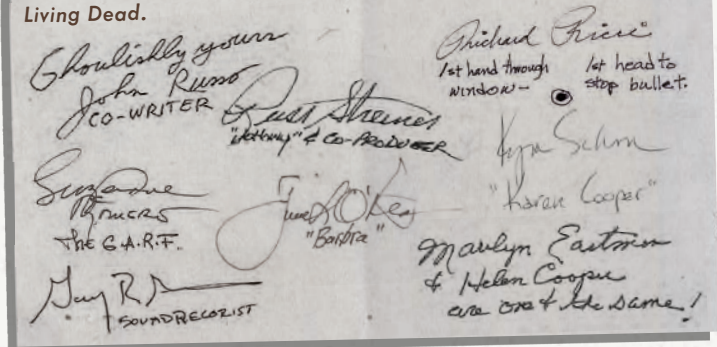 Living Dead.
Ghoulishly yours
John Russo
CO-WRITER
Russ Streiner
"Johnny" & CO-PRODUCER
Richard Ricci
1st hand through
window-
1st head to
stop bullet.
Kyra Schon
"Karen Cooper"
Suzanne
THE G.A.R.F.
Judith O'Dea
"Barbra"
Gary R
SOUNDRECORIST
Marilyn Eastman
& Helen Cooper
are one & the same!